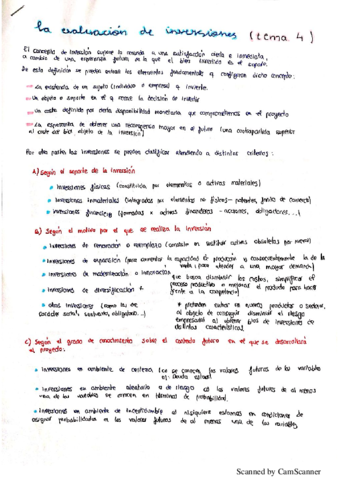 la evaluación de inversiones (tema 4)
El concepto de inversión supone la renuncia a una satisfacción cierta e inmediata,
a cambio de una esperanza futura en la que el bien invertido es el soporte.
De esta definición se pueden extraer los elementos fundamentales y configuran dicho concepto:
→ La existencia de un sujeto (individuo o empresa) q invierte.
→ Un objeto o soporte en el q recae la decisión de invertir
→ Un coste definido por cierta disponibilidad monetaria que comprometemos en el proyecto
→ La esperanza de obtener una recompensa mayor en el futuro (una contrapartida superior
al coste del bien objeto de la inversión)
Por otra parte, las inversiones se pueden clasificar atendiendo a distintos criterios:
A) Según el soporte de la inversión
• Inversiones físicas (constituida por elementos o activos materiales)
• Inversiones inmateriales (integradas por elementos no físicos - patentes, fondo de comercio)
• Inversiones financieras (formadas x activos financieros - acciones, obligaciones...)
B) Según el motivo por el que se realiza la inversión
• Inversiones de renovación o reemplazo (consiste en sustituir activos obsoletos por nuevos)
• Inversiones de expansión (para aumentar la capacidad de producción y consecuentemente la de la
venta, para atender a una mayor demanda)
• Inversiones de modernización o innovación que busca disminuir los costes, simplificar el
proceso productivo o mejorar el producto para hacer
frente a la competencia)
• Inversiones de diversificación *
• otras inversiones (como las de
carácter social, ambiental, obligatorio...)
* pretenden entrar en nuevos productos o sectores,
al objeto de conseguir disminuir el riesgo
empresarial al obtener
distintas características)
C) Según el grado de conocimiento sobre el contexto futuro en el que se desarrollará
el proyecto:
• Inversiones en ambiente de certeza (se conocen los valores futuros de las variables
• Inversiones en ambiente aleatorio o de riesgo es los valores futuros de al menos
una de las variables se conocen en términos de probabilidad.
• Inversiones en ambiente de incertidumbre si ni siquiera estamos en condiciones de
asignar probabilidades a los valores futuros de al menos una de las variables
Scanned by CamScanner